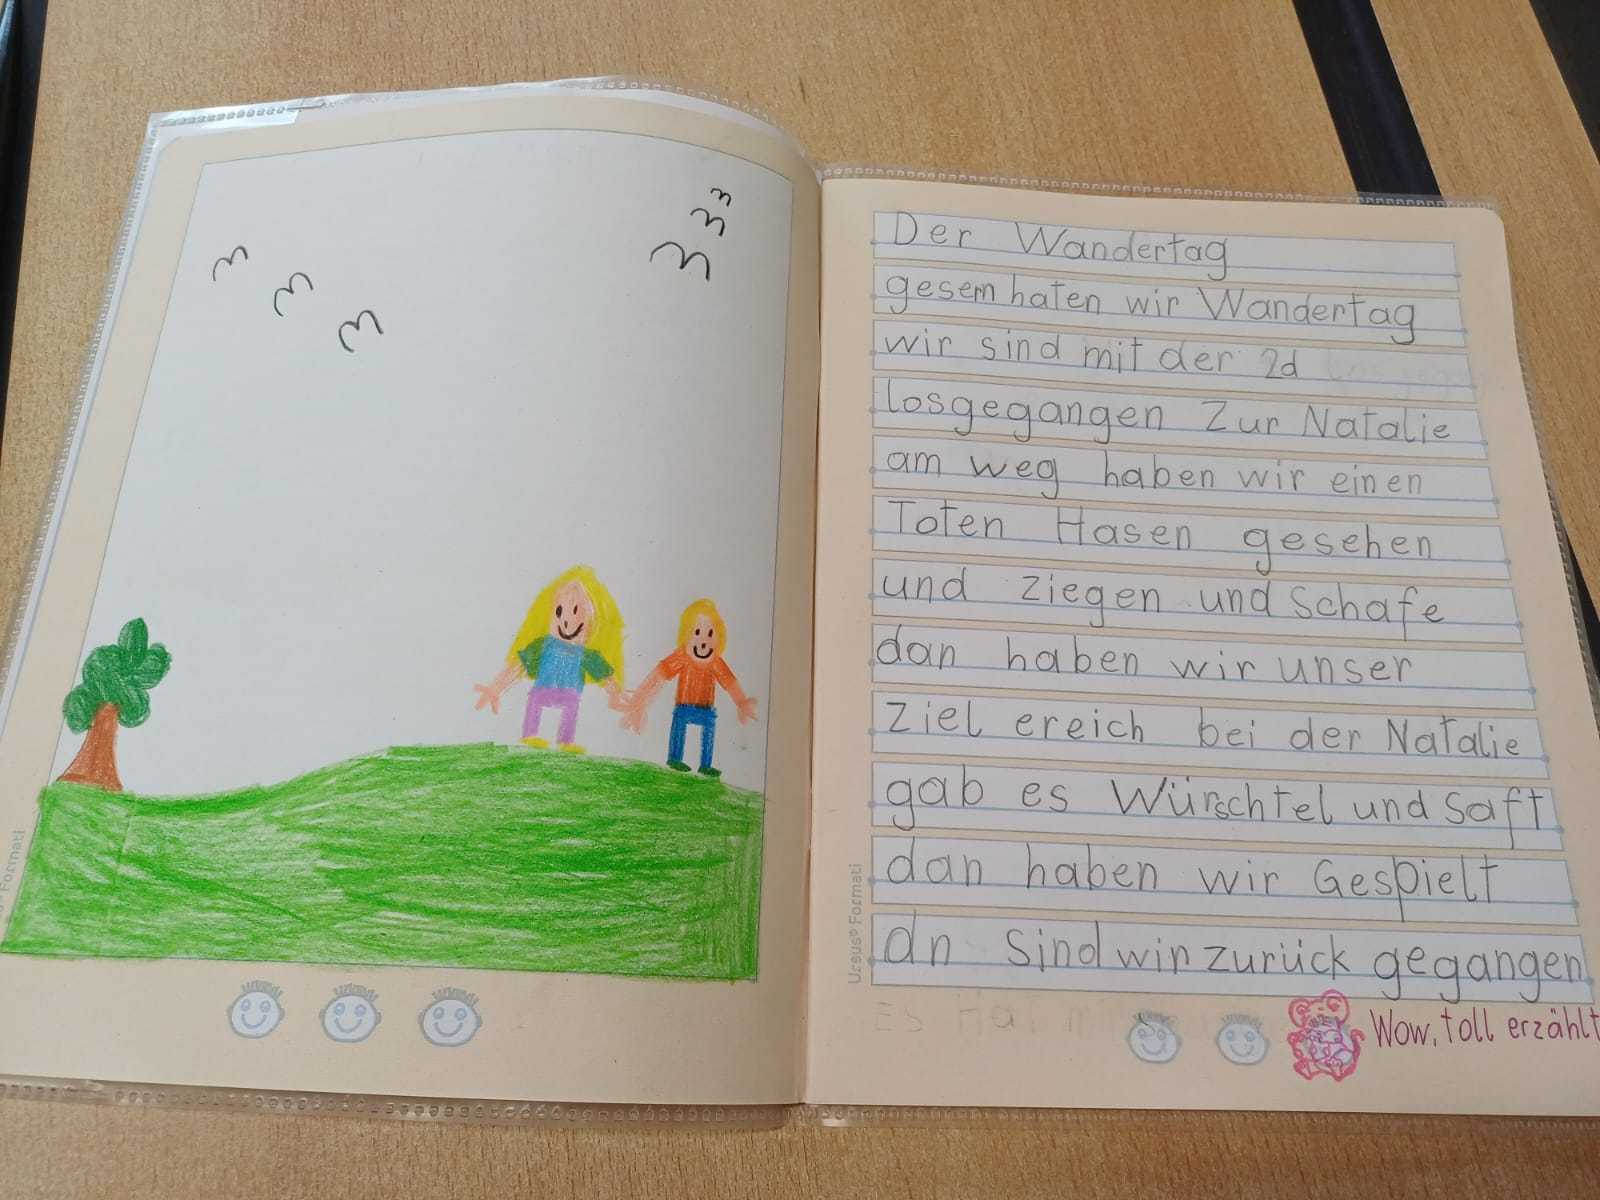 Der Wandertag
gesern haten wir Wandertag
wir sind mit der 2d
losgegangen Zur Natalie
am weg haben wir einen
Toten Hasen gesehen
und ziegen und Schafe
dan haben wir unser
ziel ereich bei der Natalie
gab es Würschtel und Saft
dan haben wir Gespielt
dn sind wir zurück gegangen
Es Hat
Wow, toll erzählt
Ursus® Formati
Formati